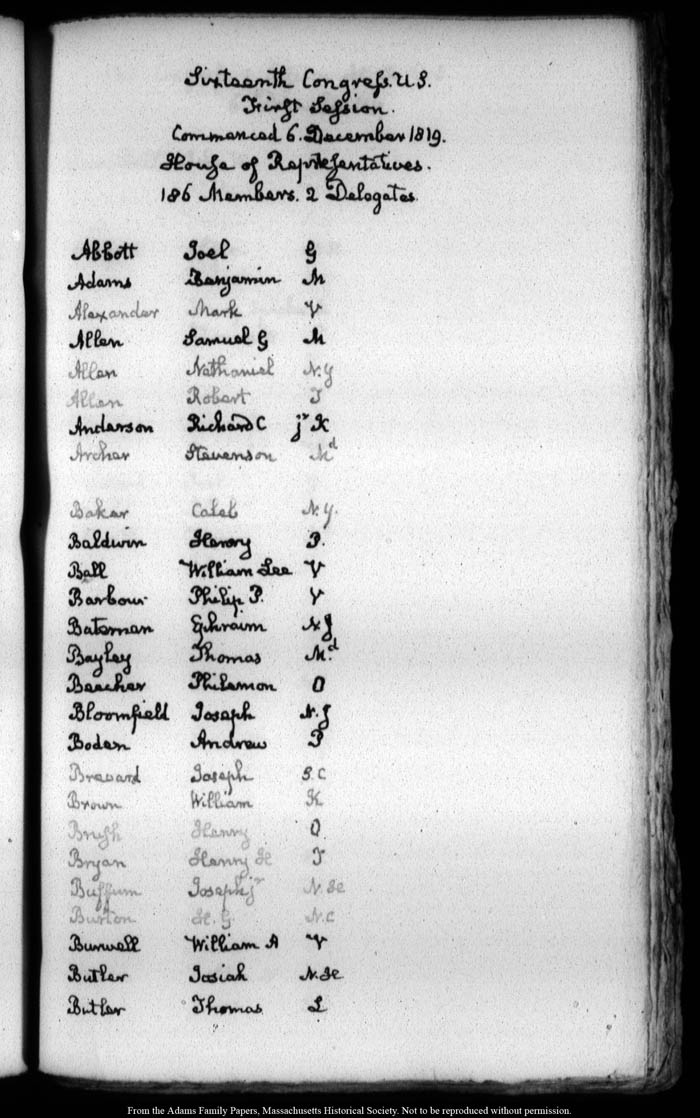 Sixteenth Congress. U.S.
First Session.
Commenced 6. December 1819.
House of Representatives.
186 Members. 2 Delegates.
Abbott Joel G
Adams Benjamin M
Alexander Mark V
Allen Samuel G M
Allen Nathaniel N.Y
Allen Robert T
Anderson Richard C jr K
Archer Stevenson Md
Baker Caleb N.Y.
Baldwin Henry P.
Ball William Lee V
Barbour Philip P. V
Bateman Ephraim N J
Bayley Thomas M.d
Beecher Philemon O
Bloomfield Joseph N.J
Boden Andrew P
Brevard Joseph S.C
Brown William K
Brush Henry O
Bryan Henry H T
Buffum Joseph jr N.H
Burton H.G. N.C
Burwell William A V
Butler Josiah N.H
Butler Thomas L
From the Adams Family Papers, Massachusetts Historical Society. Not to be reproduced without permission.